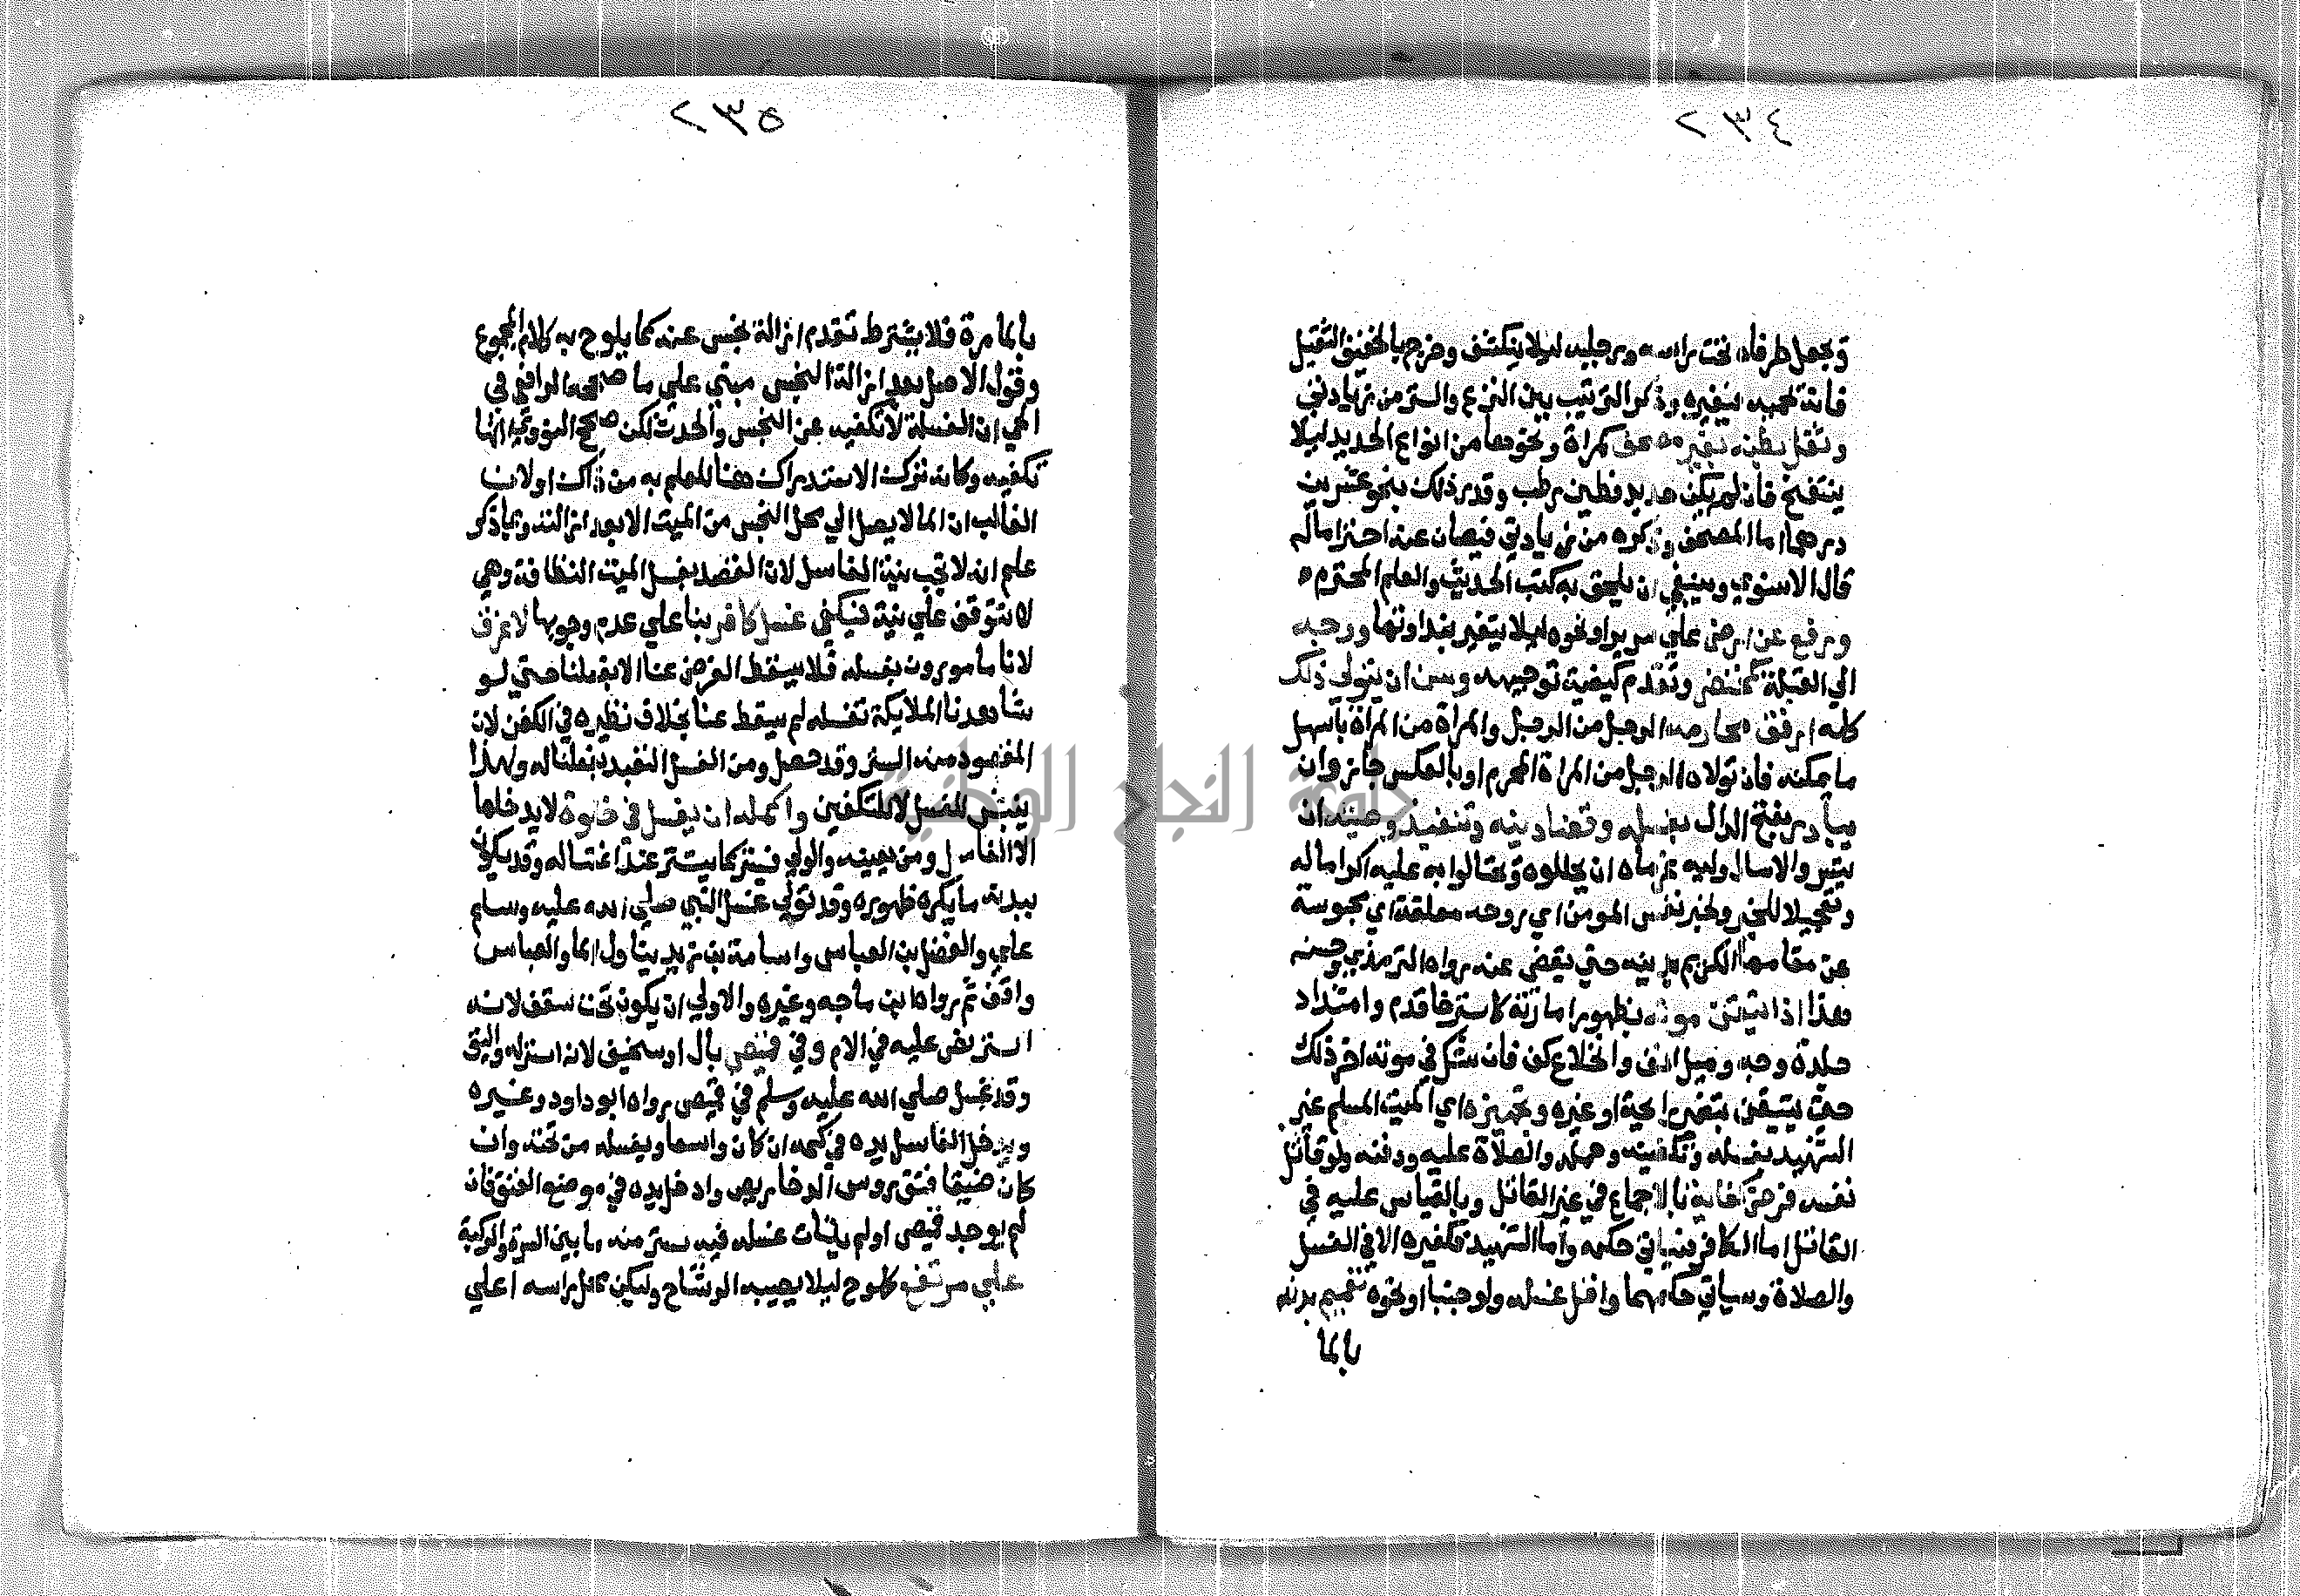 ٢٣٤
وجعل طرفاه تحت راسه ورجليه ليلا ينكشف وخرج بالخفيف الثقيل
فانه يحميه فيغيره وذكر الترتيب بين النزع والستر من زيادتي
وثقل بطنه بغير مصحف كمراة ونحوها من انواع الحديد ليلا
ينتفخ فان لم يكن حديد فطين رطب وقدر ذلك بنحو عشرين
درهما اما المصحف وذكره من زيادتي فيصان عنه احتراما له
قال الاسنوي وينبغي ان يلحق به كتب الحديث والعلم المحترم
ورفع عن ارض علي سرير او نحوه ليلا يتغير بنداوتها ووجه
الي القبلة كمحتضر وتقدم كيفية توجيهه وسن ان يتولي ذلك
كله ارفق محارمه الرجل من الرجل والمراة من المراة باسهل
ما يمكنه فان تولاه الرجل من المراة المحرم او بالعكس جاز وان
يبادر بفتح الدال بغسله وقضا دينه وتنفيذ وصيته ان
تيسر والا سال وليه غرماه ان يحللوه ويحتالوا به عليه اكراما له
وتعجيلا للخير ولخبر نفس المومن اي روحه معلقة اي محبوسة
عن مقامها الكريم بدينه حتي يقضي عنه رواه الترمذي وحسنه
هذا اذا تيقن موته بظهور اماراته كاسترخا قدم وامتداد
جلدة وجه وميل انف وانخلاع كف فان شك في موته اخر ذلك
حتي يتيقن بتغير رايحة او غيره وتجهيزه اي الميت المسلم غير
الشهيد بغسله وتكفينه وحمله والصلاة عليه ودفنه ولو قاتل
نفسه فرض كفاية بالاجماع في غير القاتل وبالقياس عليه في
القاتل اما الكافر فسياتي حكمه واما الشهيد فكغيره الا في الغسل
والصلاة وسياتي حكمهما واقل غسله ولو جنبا او نحوه تعميم بدنه
بالما
٢٣٥
بالما مرة فلا يشترط تقدم ازالة نجس عنه كما يلوح به كلام المجموع
وقول الاصل بعد ازالة النجس مبني علي ما صححه الرافعي في
الحي ان الغسلة لا تكفيه عن النجس والحدث لكن صحح النووي انها
تكفيه وكانه ترك الاستدراك هنا للعلم به من ذاك او لان
الغالب ان الما لا يصل الي محل النجس من الميت الا بعد ازالته وبما ذكر
علم انه لا تجب نية الغاسل لان القصد بغسل الميت النظافة وهي
لا تتوقف علي نية فيكفي غسل كافر بنا علي عدم وجوبها لا غرق
لانا مامورون بغسله فلا يسقط الفرض عنا الا بفعلنا حتي لو
شاهدنا الملايكة تغسله لم يسقط عنا بخلاف نظيره في الكفن لان
المقصود منه الستر وقد حصل ومن الغسل التعبد بفعلنا له ولهذا
ينبش للغسل لا للتكفين واكمله ان يغسل في خلوة لا يدخلها
الا الغاسل ومن يعينه والولي فيستر كما يستتر عند اغتساله وقد يكون
ببدنه ما يكره ظهوره وقد تولي غسل النبي صلي الله عليه وسلم
علي والفضل بن العباس واسامة بن زيد يناول الما والعباس
واقف ثم رواه ابن ماجه وغيره والاولي ان يكون تحت سقف لانه
استر نص عليه في الام وفي قميص بال او سخيف لانه استر له واليق
وقد غسل صلي الله عليه وسلم في قميص رواه ابو داود وغيره
ويدخل الغاسل يده في كمه ان كان واسعا ويغسله من تحته وان
كان ضيقا فتق روس الدخاريص وادخل يده في موضع الفتق فان
لم يوجد قميص او لم يتات غسله فيه ستر منه ما بين السرة والركبة
علي مرتفع كلوح ليلا يصيبه الرشاش وليكن محل راسه اعلي
جامعة النجاح الوطنية